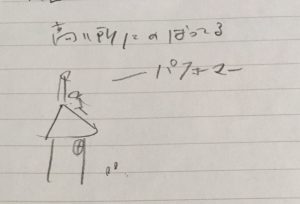 高い所にのぼってる
パフォーマー